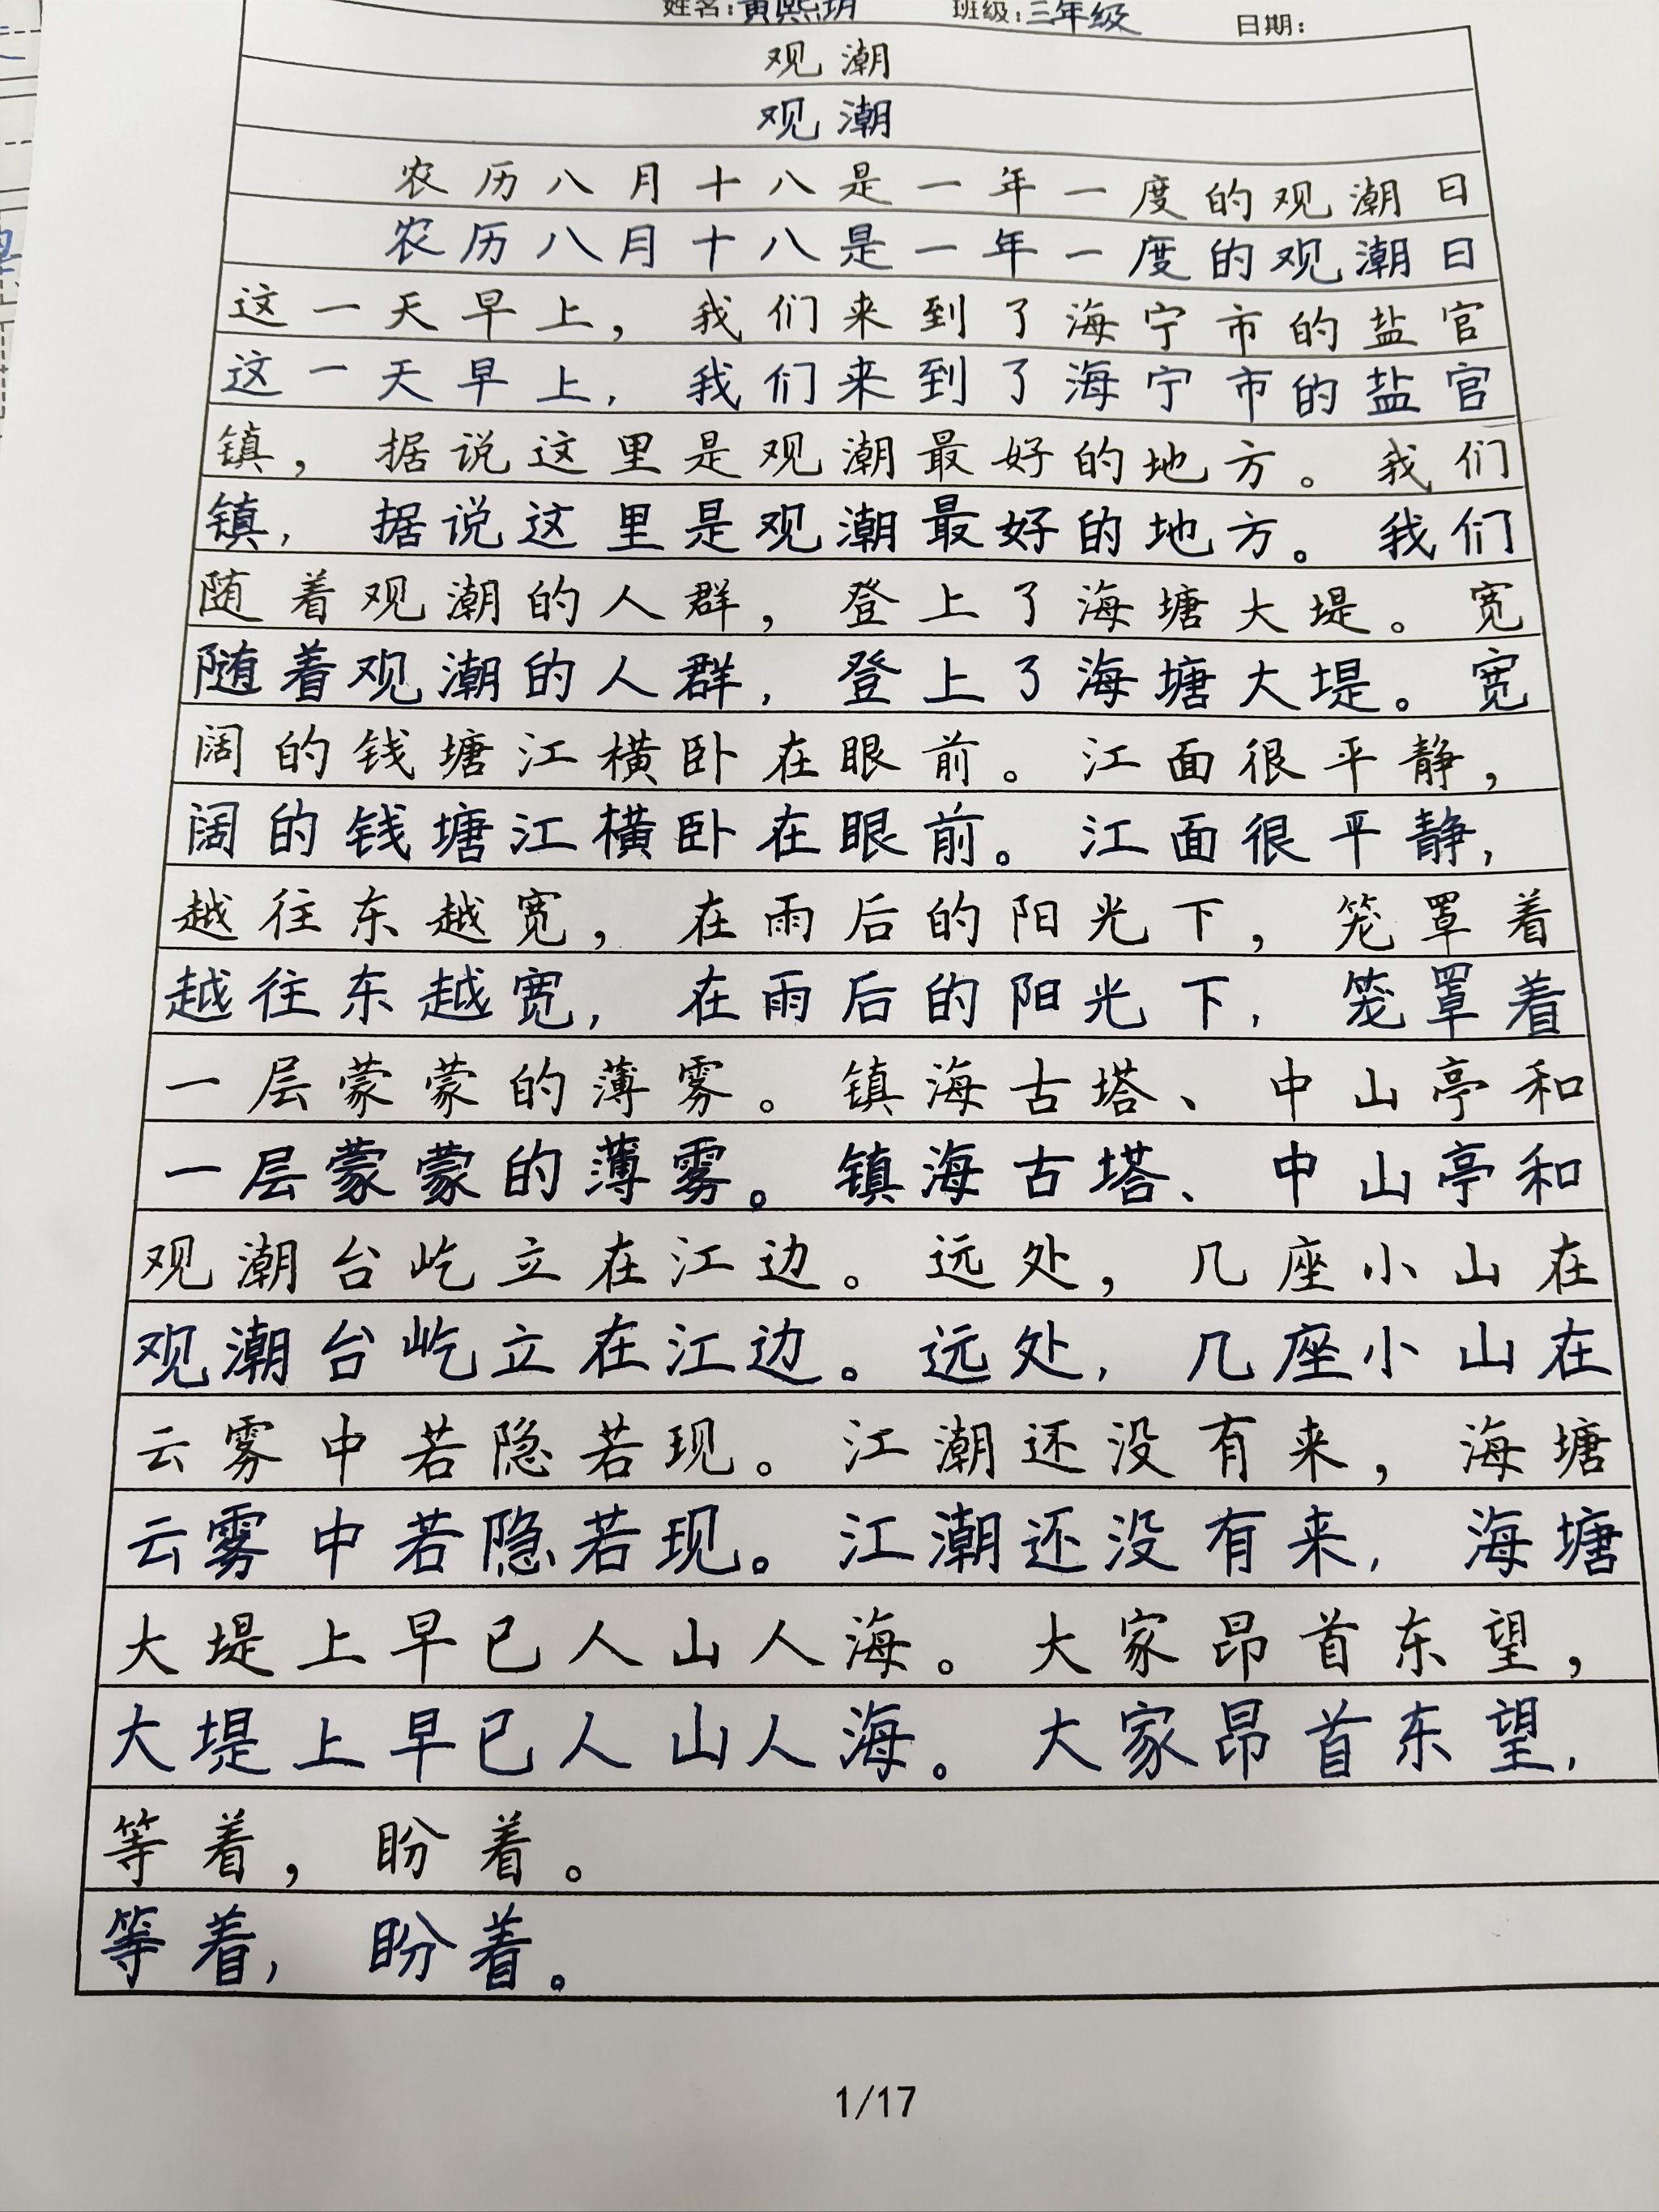 姓名:黄熙玥 班级:三年级 日期:
观潮
观潮
农历八月十八是一年一度的观潮日
农历八月十八是一年一度的观潮日
这一天早上，我们来到了海宁市的盐官
这一天早上，我们来到了海宁市的盐官
镇，据说这里是观潮最好的地方。我们
镇，据说这里是观潮最好的地方。我们
随着观潮的人群，登上了海塘大堤。宽
随着观潮的人群，登上了海塘大堤。宽
阔的钱塘江横卧在眼前。江面很平静，
阔的钱塘江横卧在眼前。江面很平静，
越往东越宽，在雨后的阳光下，笼罩着
越往东越宽，在雨后的阳光下，笼罩着
一层蒙蒙的薄雾。镇海古塔、中山亭和
一层蒙蒙的薄雾。镇海古塔、中山亭和
观潮台屹立在江边。远处，几座小山在
观潮台屹立在江边。远处，几座小山在
云雾中若隐若现。江潮还没有来，海塘
云雾中若隐若现。江潮还没有来，海塘
大堤上早已人山人海。大家昂首东望，
大堤上早已人山人海。大家昂首东望，
等着，盼着。
等着，盼着。
1/17